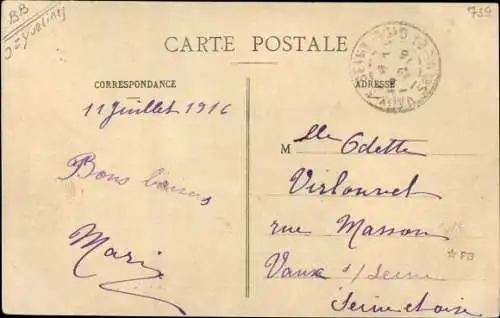 BB
739
CARTE POSTALE
CORRESPONDANCE
ADRESSE
11 Juillet 1916
Bons baisers
Marie
M lle Odette
Virlouvet
rue Masson
Vaux s/ Seine
Seine et oise